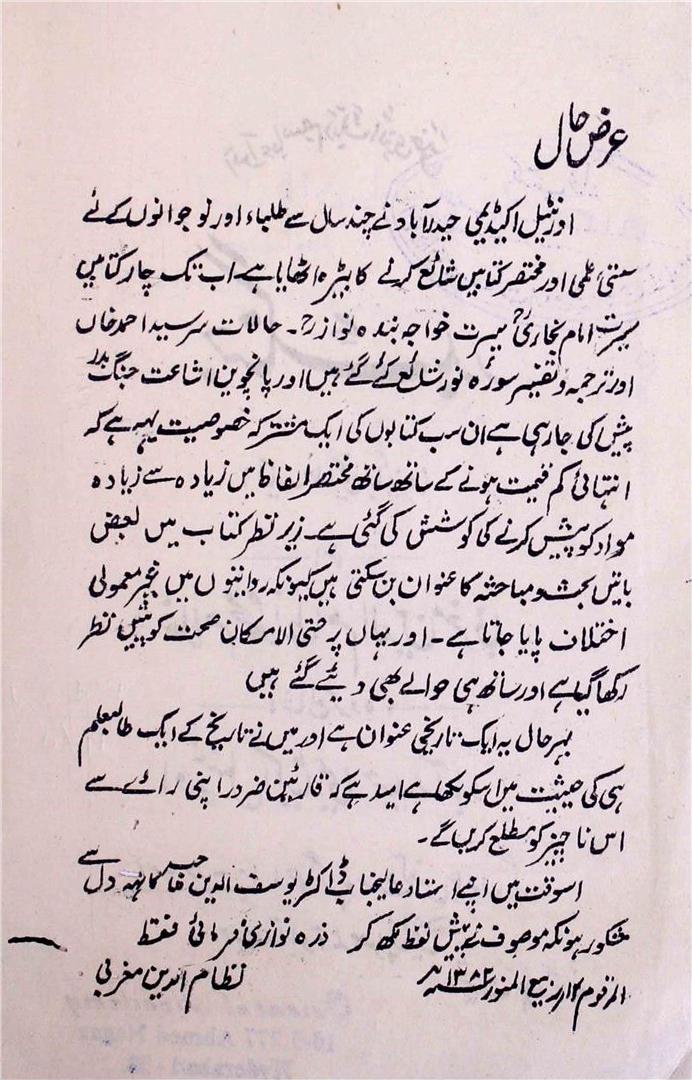 عرض حال
اورنٹیل اکیڈیمی حیدرآباد نے چند سال سے طلباء اور نوجوانوں کے لئے
سستی علمی اور مختصر کتابیں شائع کرنے کا بیڑہ اٹھایا ہے۔ اب تک چار کتابیں
سیرت امام بخاریؒ سیرت خواجہ بندہ نوازؒ۔ حالات سر سید احمد خاں
اور ترجمہ و تفسیر سورہ نور شائع کئے گئے ہیں اور پانچویں اشاعت جنگ بدر
پیش کی جارہی ہے ان سب کتابوں کی ایک مشترکہ خصوصیت یہہ ہے کہ
انتہائی کم قیمت ہونے کے ساتھ ساتھ مختصر الفاظ میں زیادہ سے زیادہ
مواد کو پیش کرنے کی کوشش کی گئی ہے۔ زیر نظر کتاب میں بعض
باتیں بحث و مباحثہ کا عنوان بن سکتی ہیں کیونکہ روایتوں میں غیر معمولی
اختلاف پایا جاتا ہے۔ اور یہاں پر حتی الامکان صحت کو پیش نظر
رکھا گیا ہے اور ساتھ ہی حوالے بھی دیئے گئے ہیں
بہر حال یہ ایک تاریخی عنوان ہے اور میں نے تاریخ کے ایک طالبعلم
ہی کی حیثیت میں اسکو لکھا ہے امید ہے کہ قارئین ضرور اپنی رائے سے
اس ناچیز کو مطلع کریں گے۔
اسوقت میں اپنے استاد عالیجناب ڈاکٹر یوسف الدین صاحب کا تہہ دل سے
مشکور ہونکہ موصوف نے پیش لفظ لکھ کر ذرہ نوازی فرمائی فقط
المرقوم ۱۲ ربیع المنور ۱۳۸۴ھ نظام الدین مغربی